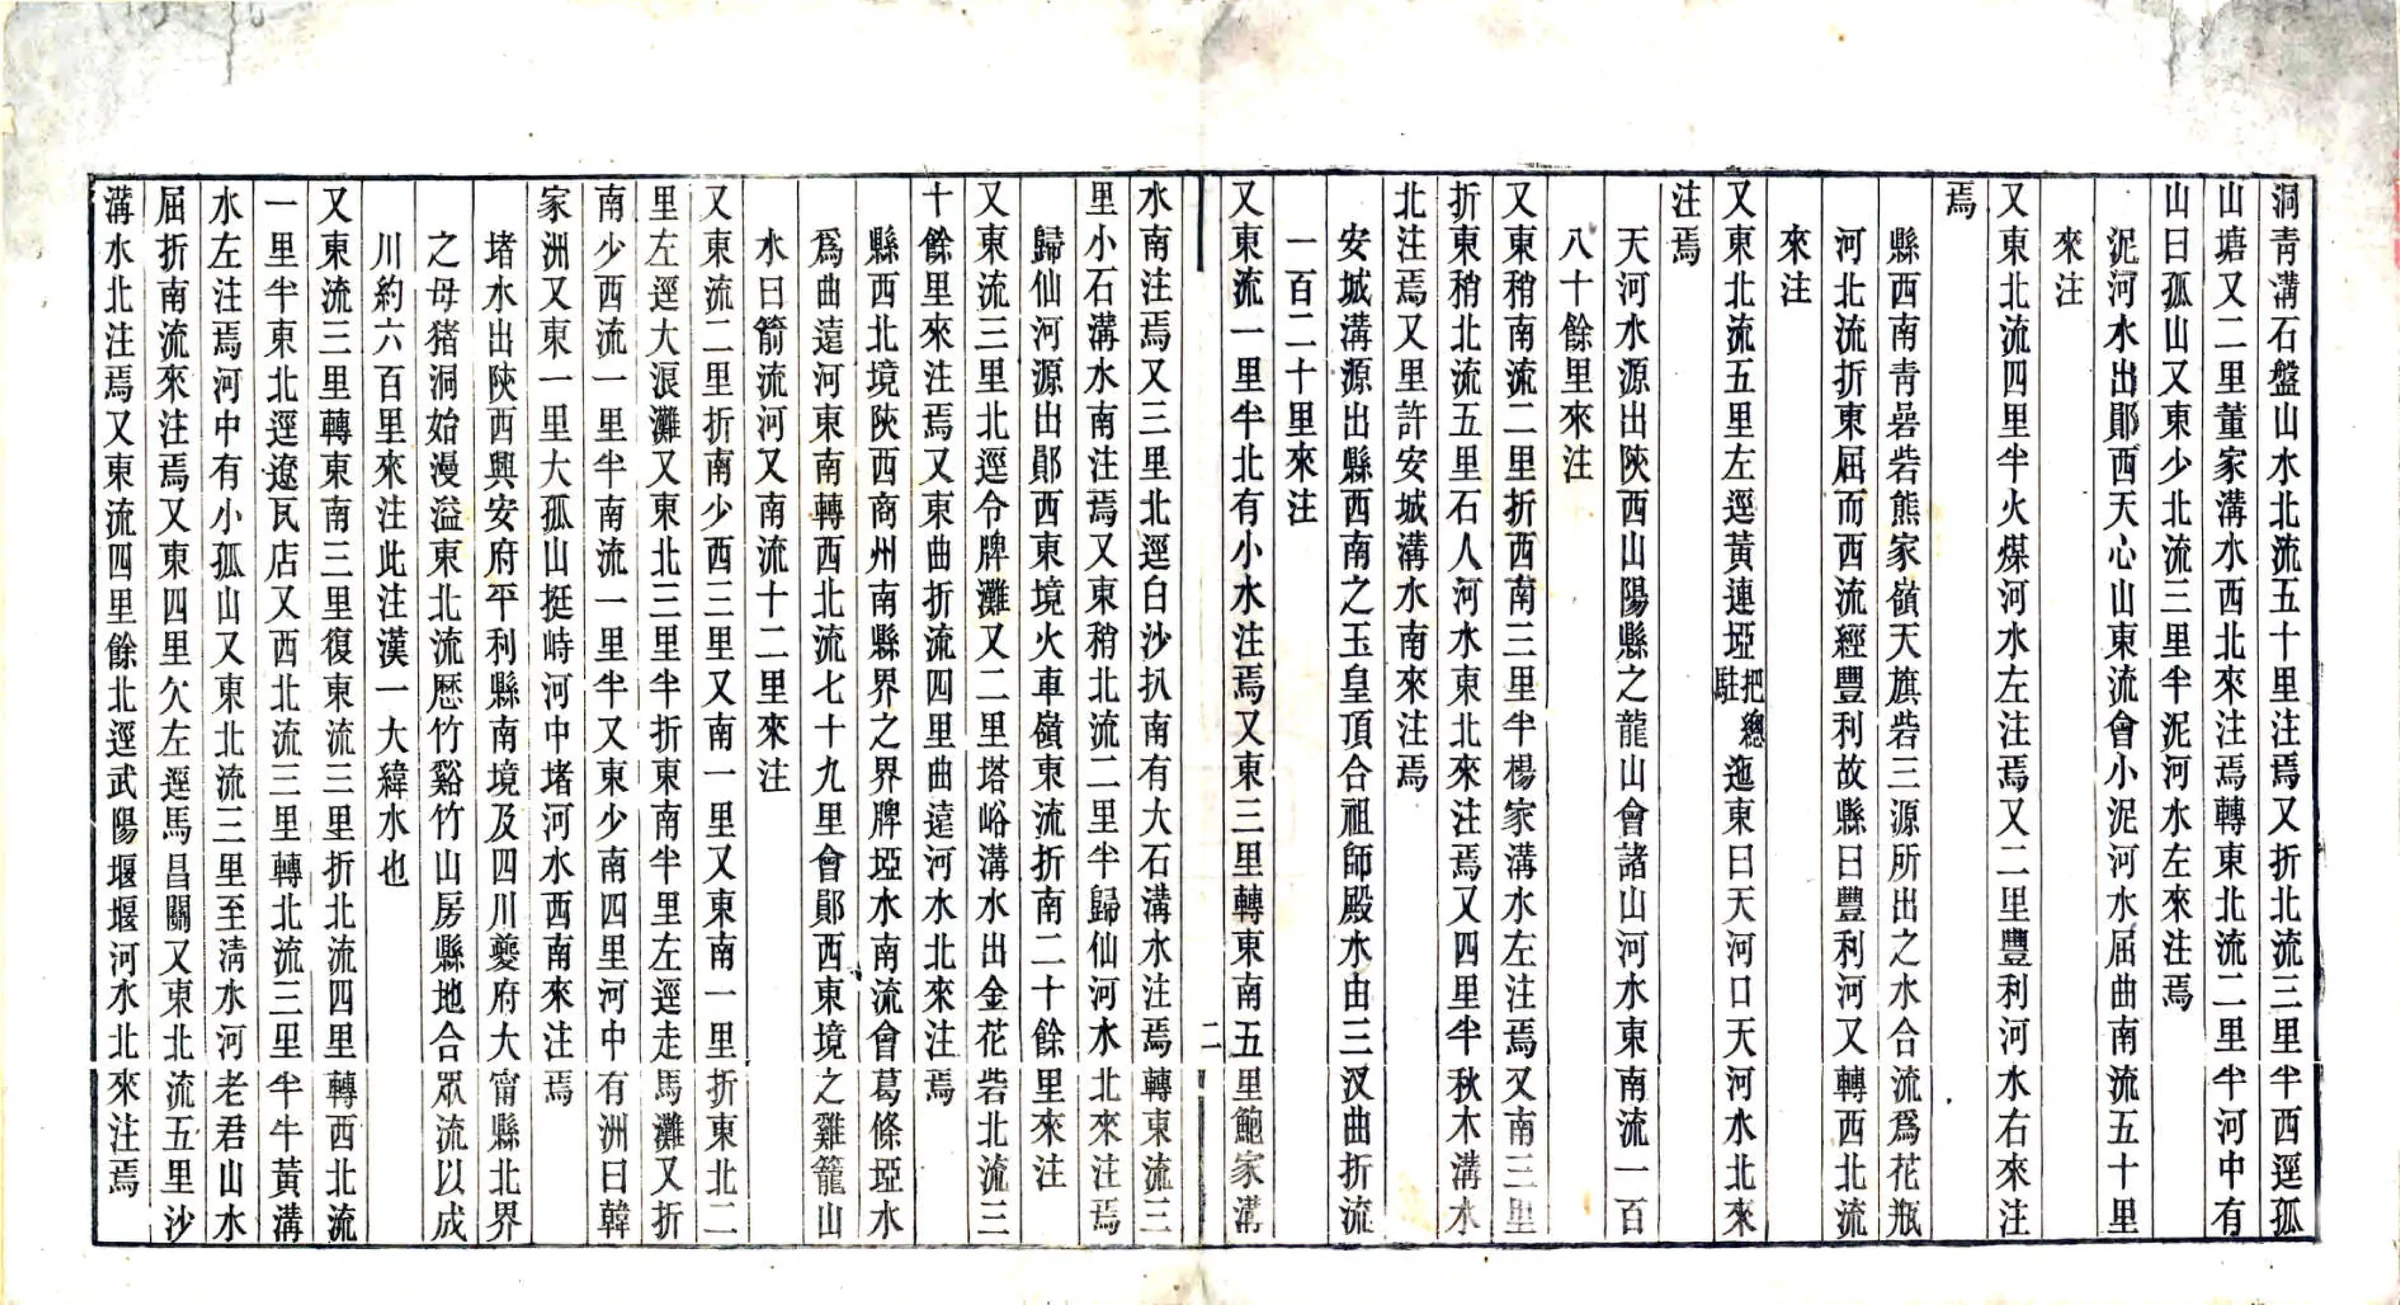 洞青溝石盤山水北流五十里注焉又折北流三里半西逕孤
山塘又二里董家溝水西北來注焉轉東北流二里半河中有
山曰孤山又東少北流三里半泥河水左來注焉
泥河水出鄖西天心山東流會小泥河水屈曲南流五十里
來注
又東北流四里半火煤河水左注焉又二里豐利河水右來注
焉
縣西南青碞砦熊家嶺天旗砦三源所出之水合流爲花瓶
河北流折東屈而西流經豐利故縣曰豐利河又轉西北流
來注
又東北流五里左逕黃連埡把總駐迤東曰天河口天河水北來
注焉
天河水源出陝西山陽縣之龍山會諸山河水東南流一百
八十餘里來注
又東稍南流二里折西南三里半楊家溝水左注焉又南三里
折東稍北流五里石人河水東北來注焉又四里半秋木溝水
北注焉又里許安城溝水南來注焉
安城溝源出縣西南之玉皇頂合祖師殿水由三汊曲折流
一百二十里來注
又東流一里半北有小水注焉又東三里轉東南五里鮑家溝
二
水南注焉又三里北逕白沙扒南有大石溝水注焉轉東流三
里小石溝水南注焉又東稍北流二里半歸仙河水北來注焉
歸仙河源出鄖西東境火車嶺東流折南二十餘里來注
又東流三里北逕令牌灘又二里塔峪溝水出金花砦北流三
十餘里來注焉又東曲折流四里曲遠河水北來注焉
縣西北境陝西商州南縣界之界牌埡水南流會葛條埡水
爲曲遠河東南轉西北流七十九里會鄖西東境之雞籠山
水曰箭流河又南流十二里來注
又東流二里折南少西三里又南一里又東南一里折東北二
里左逕大浪灘又東北三里半折東南半里左逕走馬灘又折
南少西流一里半南流一里半又東少南四里河中有洲曰韓
家洲又東一里大孤山挺峙河中堵河水西南來注焉
堵水出陝西興安府平利縣南境及四川夔府大甯縣北界
之母猪洞始漫溢東北流歷竹谿竹山房縣地合眾流以成
川約六百里來注此注漢一大緯水也
又東流三里轉東南三里復東流三里折北流四里轉西北流
一里半東北逕遼瓦店又西北流三里轉北流三里半牛黃溝
水左注焉河中有小孤山又東北流三里至淸水河老君山水
屈折南流來注焉又東四里欠左逕馬昌關又東北流五里沙
溝水北注焉又東流四里餘北逕武陽堰堰河水北來注焉